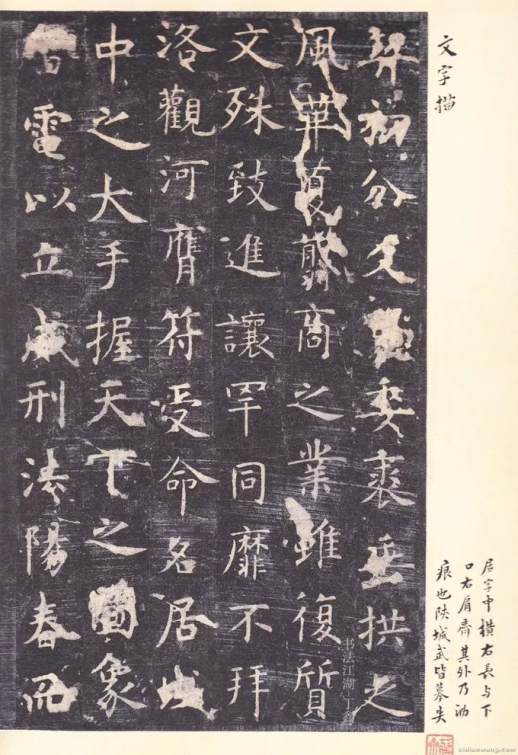 文字描
初分爻委裘垂拱之
風華夏翦商之業雖復質
文殊致進讓罕同靡不拜
洛觀河膺符受命名居域
中之大手握天下之圖象
電以立威刑法陽春而
居字中橫右長与下
口右肩齊其外乃泐
痕也陝城武皆摹失
书法江湖